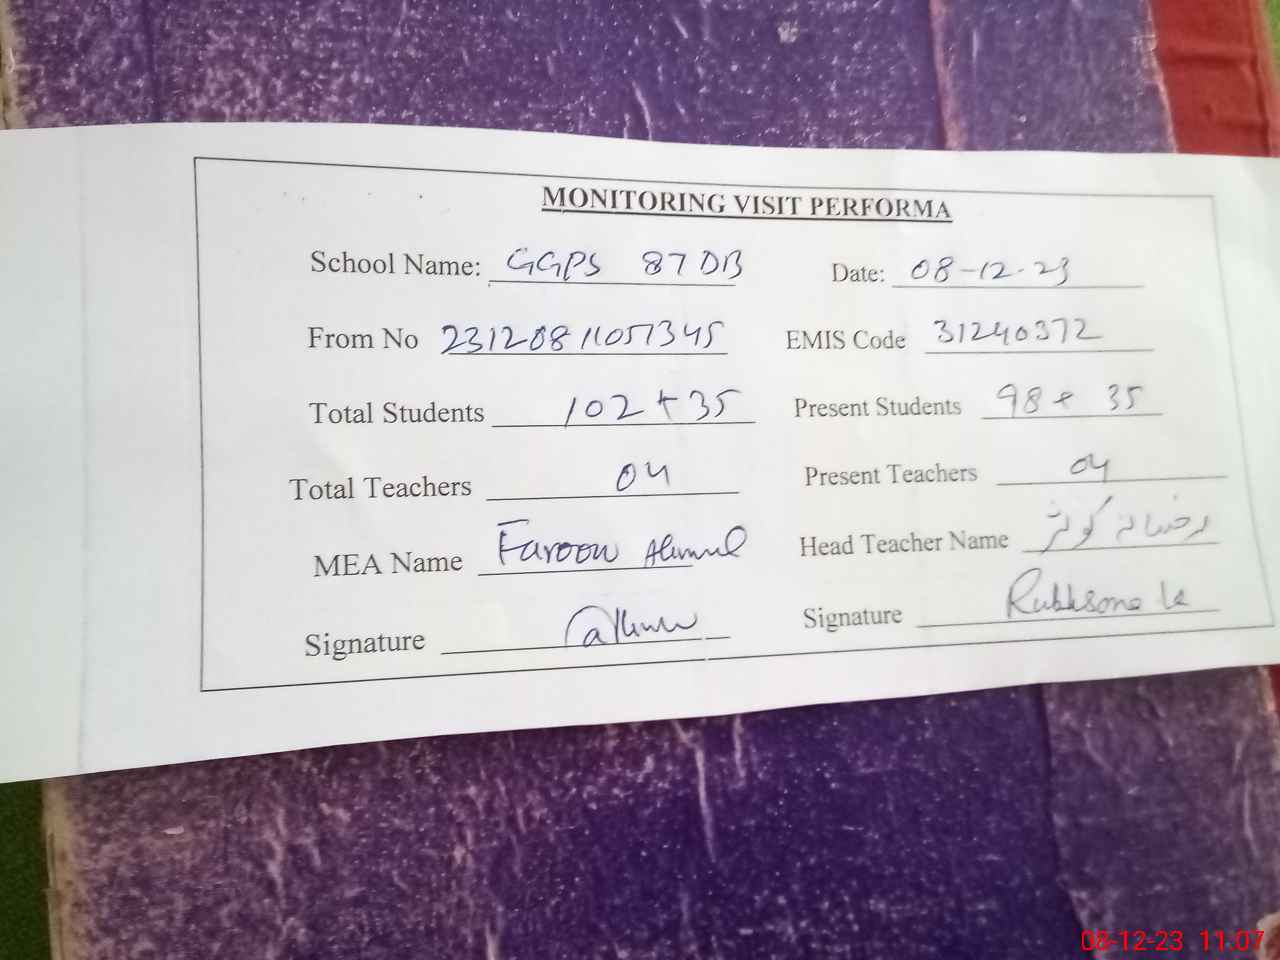 MONITORING VISIT PERFORMA
School Name: GGPS 87 DB Date: 08-12-23
From No 23120811051345 EMIS Code 31240372
Total Students 102 + 35 Present Students 98 + 35
Total Teachers 04 Present Teachers 04
MEA Name Farooq Ahmad Head Teacher Name رخسانہ کوثر
Signature Signature Rukhsana k
08-12-23 11:07